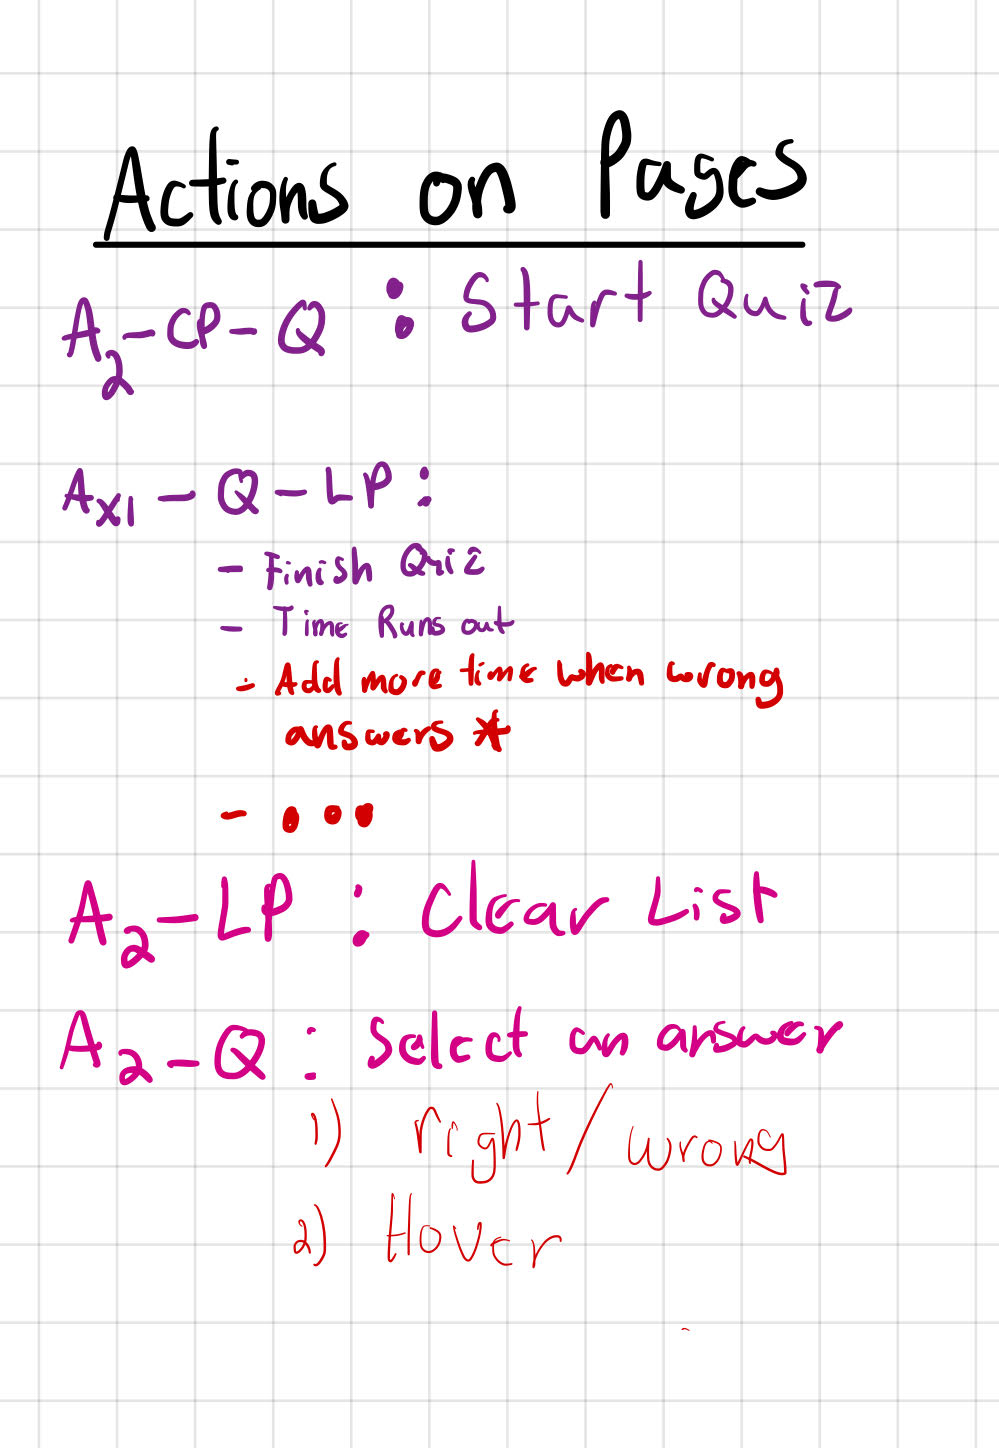 Actions on Pages
A2-CP-Q : Start Quiz
AX1 - Q - LP :
- Finish Quiz
- Time Runs out
- Add more time when wrong
answers *
- ...
A2-LP : Clear List
A2-Q : Select an answer
1) right/wrong
2) Hover